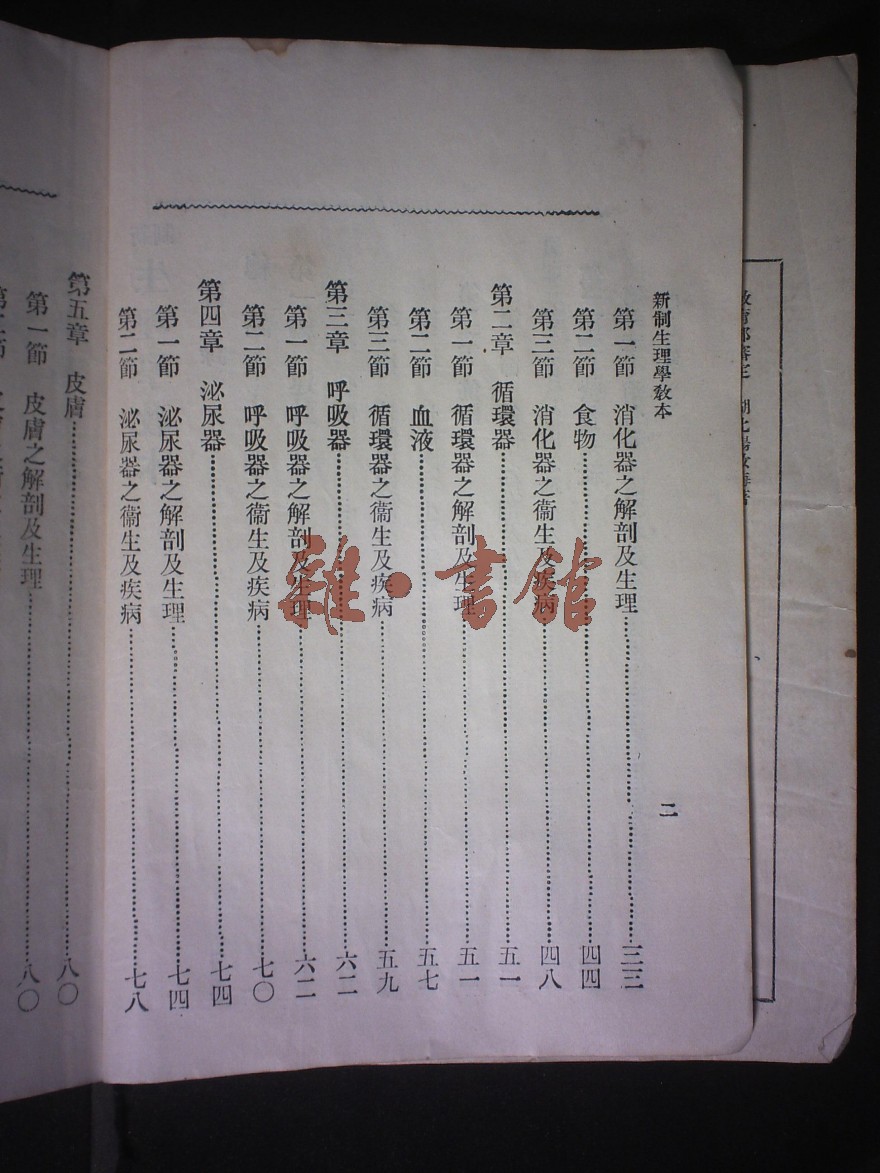 新制生理學敎本
二
第一節 消化器之解剖及生理 三三
第二節 食物 四四
第三節 消化器之衞生及疾病 四八
第二章 循環器 五一
第一節 循環器之解剖及生理 五一
第二節 血液 五七
第三節 循環器之衞生及疾病 五九
第三章 呼吸器 六二
第一節 呼吸器之解剖及生理 六二
第二節 呼吸器之衞生及疾病 七〇
第四章 泌尿器 七四
第一節 泌尿器之解剖及生理 七四
第二節 泌尿器之衞生及疾病 七八
第五章 皮膚 八〇
第一節 皮膚之解剖及生理 八〇
雜·書館